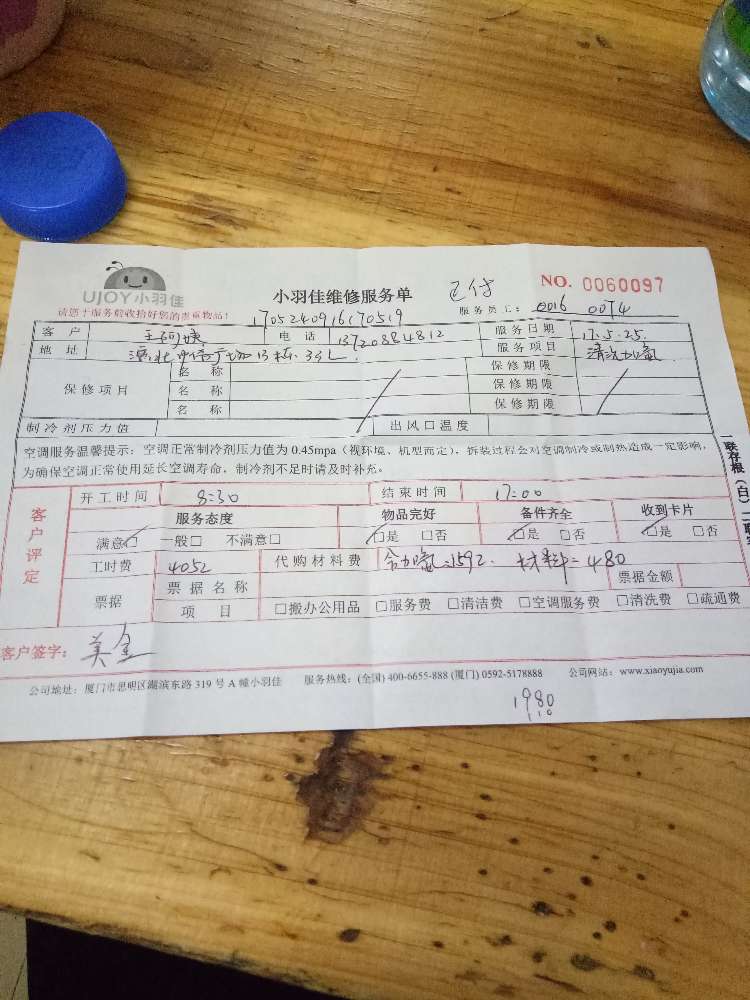 UJOY小羽佳
小羽佳维修服务单
已付
NO. 0060097
请您于服务前收拾好您的贵重物品!
17052409161670519
服务员工: 0016 0074
客户 王阿姨 电话 13720884812 服务日期 17.5.25.
地址 13栋33L. 服务项目 清洗加氟
保修项目 名称 保修期限
名称 保修期限
名称 保修期限
制冷剂压力值 出风口温度
空调服务温馨提示:空调正常制冷剂压力值为0.45mpa(视环境、机型而定),拆装过程会对空调制冷或制热造成一定影响,
为确保空调正常使用延长空调寿命,制冷剂不足时请及时补充。
客户评定
开工时间 8:30 结束时间 17:00
服务态度 物品完好 备件齐全 收到卡片
满意□ 一般□ 不满意□ □是 □否 □是 □否 □是 □否
工时费 4052 代购材料费 1592. 材料=480
票据 票据名称 票据金额
项目 □搬办公用品 □服务费 □清洁费 □空调服务费 □清洗费 □疏通费
客户签字:
公司地址:厦门市思明区湖滨东路319号A幢小羽佳 服务热线:(全国)400-6655-888 (厦门)0592-5178888 公司网站:www.xiaoyujia.com
1980
一联存根(白)